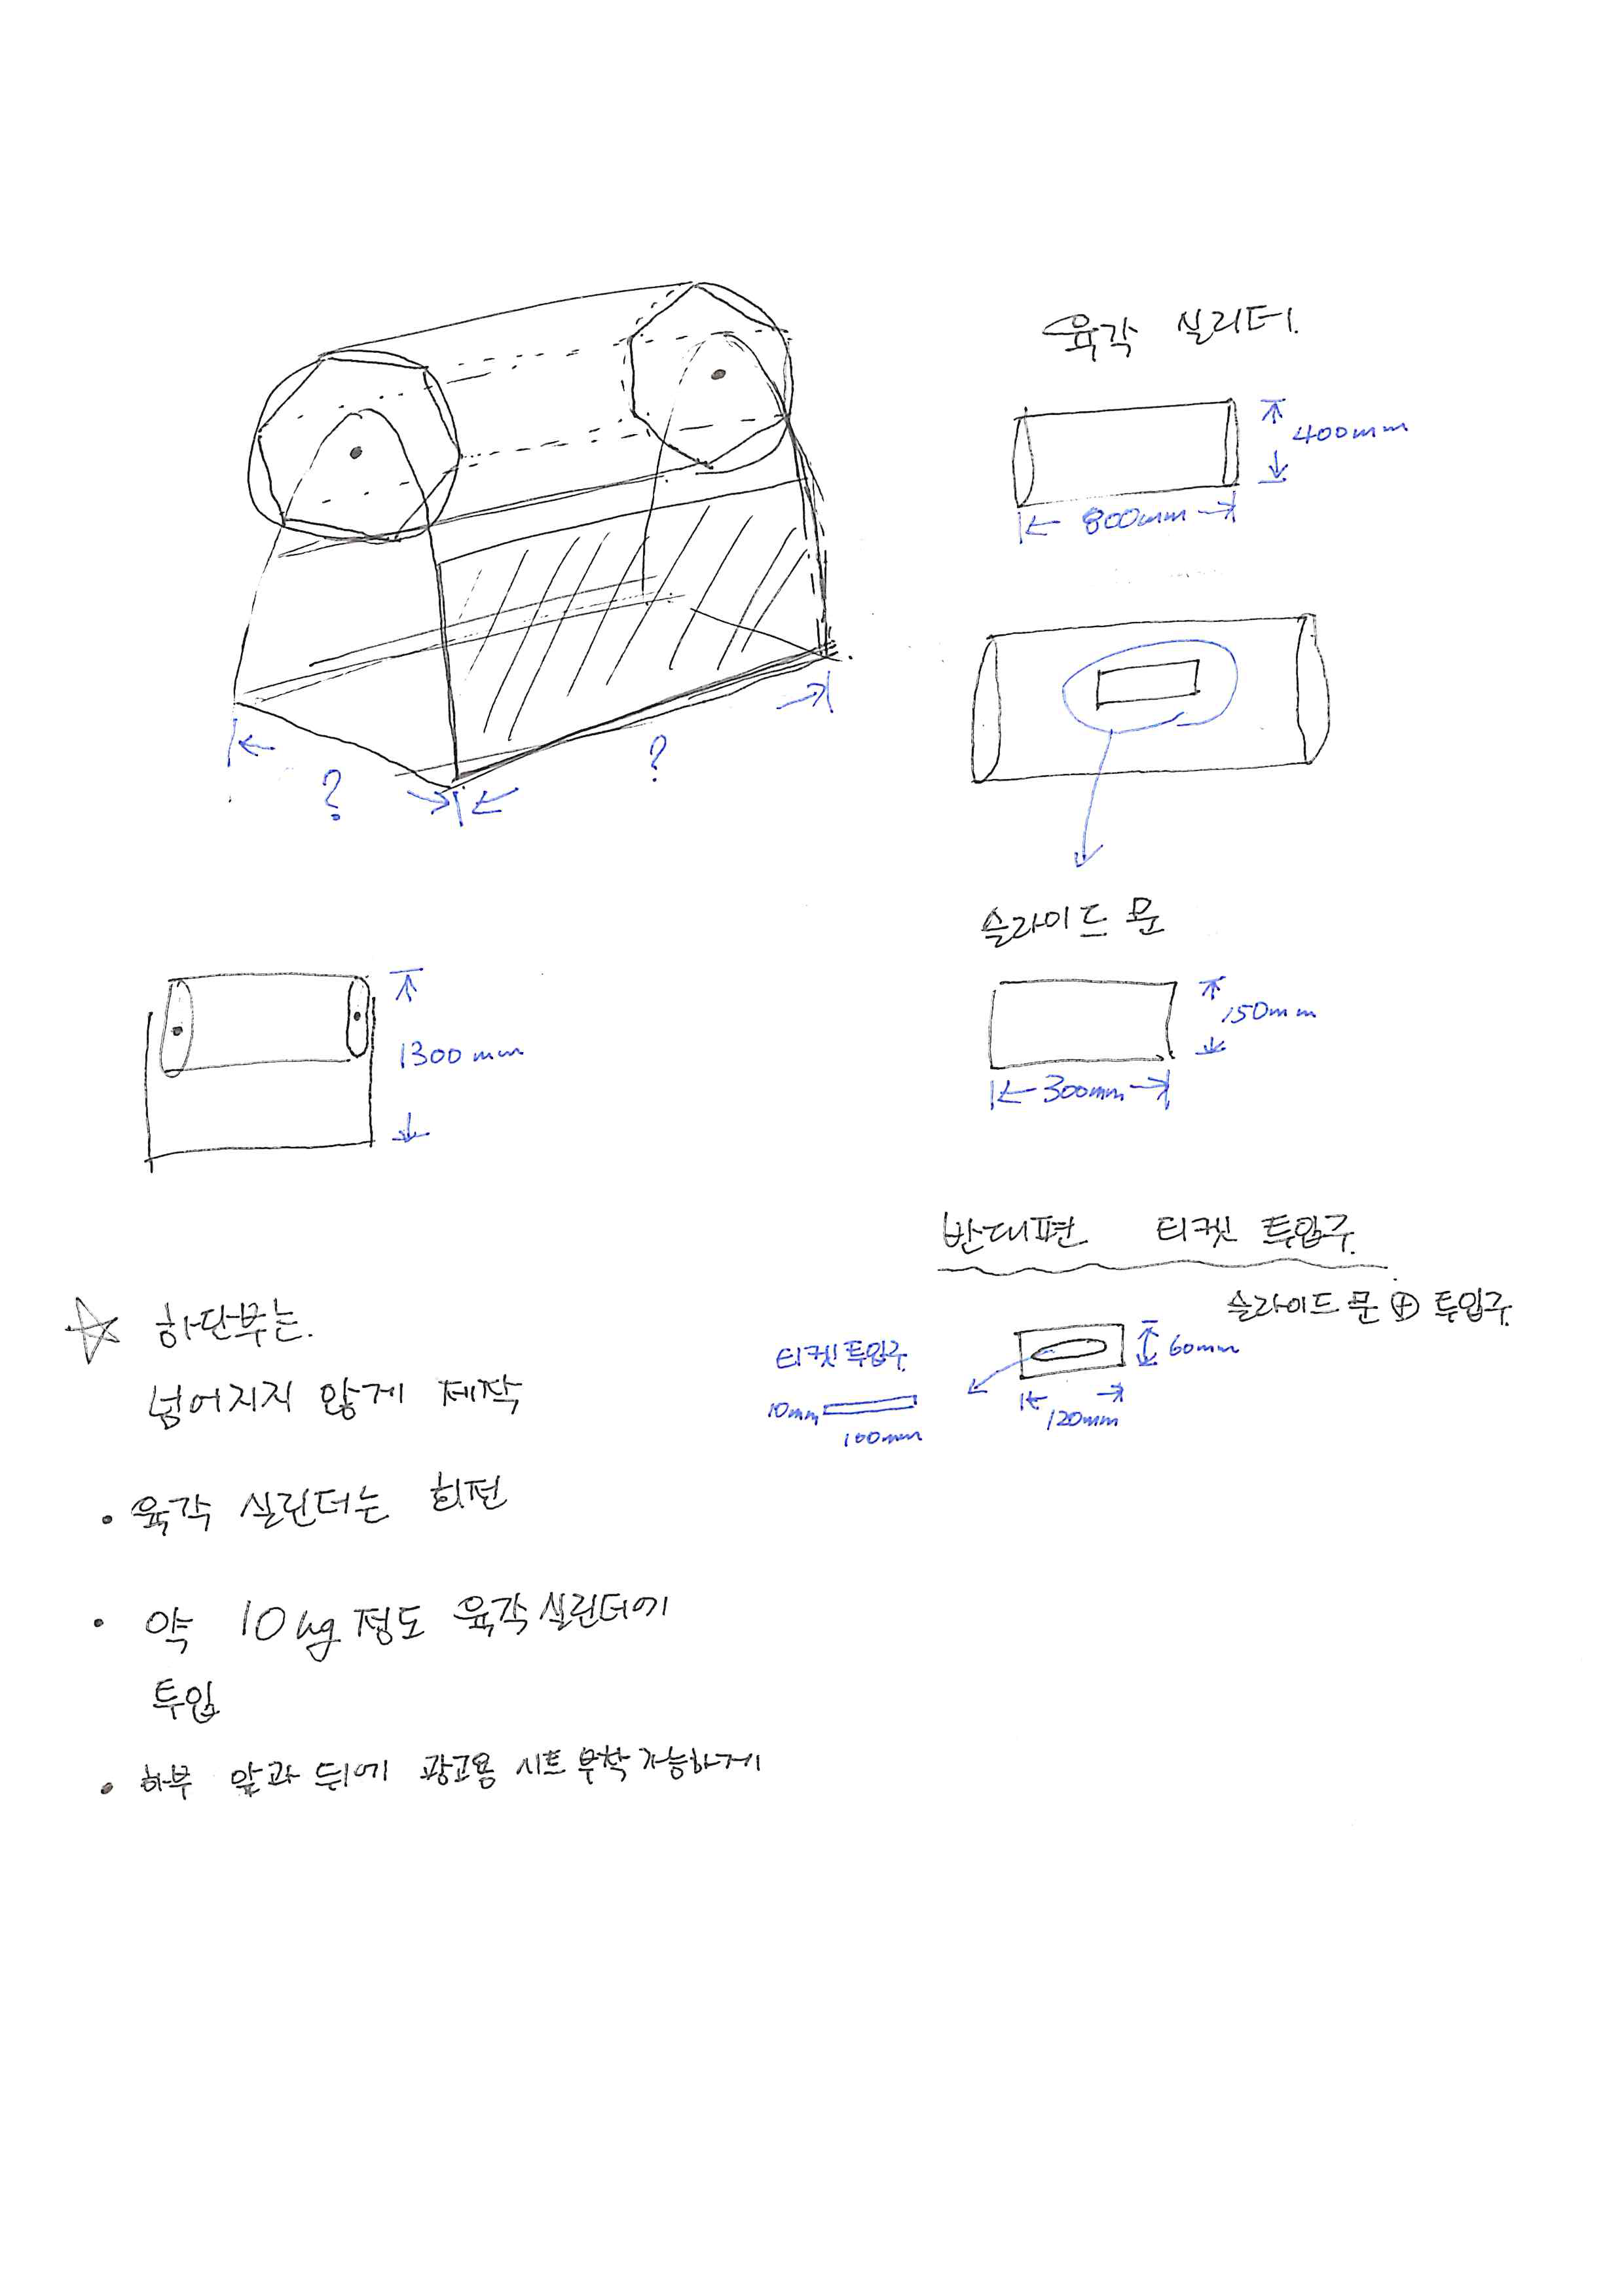 육각 실리더.
400mm
800mm
?
?
슬라이드 문
150mm
300mm
1300mm
반대편 티켓 투입구
슬라이드 문 ⊕ 투입구
티켓 투입구
10mm
100mm
60mm
120mm
☆ 하단부는.
넘어지지 않게 제작
• 육각 실린더는 회전
• 약 10kg 정도 육각 실린더에
투입
• 하부 앞과 뒤에 광고용 시트 부착 가능하게